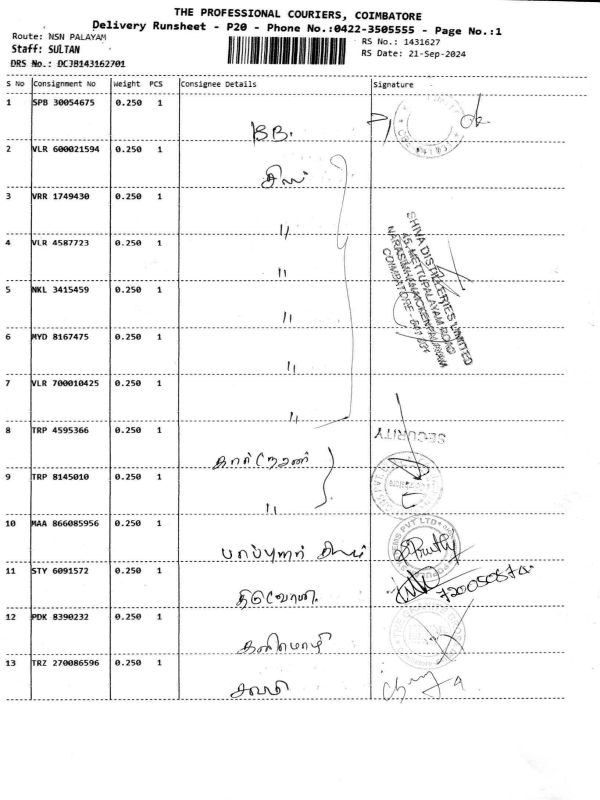 THE PROFESSIONAL COURIERS, COIMBATORE
Delivery Runsheet - P20 - Phone No.:0422-3505555 - Page No.:1
Route: NSN PALAYAM
RS No.: 1431627
Staff: SULTAN
RS Date: 21-Sep-2024
DRS No.: DCJB143162701
S No Consignment No Weight PCS Consignee Details Signature
1 SPB 30054675 0.250 1
BB.
2 VLR 600021594 0.250 1
3 VRR 1749430 0.250 1
"
4 VLR 4587723 0.250 1
"
SHIVA DISTILLERIES LIMITED
METTUPALAYAM ROAD
COIMBATORE
5 NKL 3415459 0.250 1
"
6 MYD 8167475 0.250 1
"
7 VLR 700010425 0.250 1
"
8 TRP 4595366 0.250 1
SECURITY
9 TRP 8145010 0.250 1
"
10 MAA 866085956 0.250 1
11 STY 6091572 0.250 1
12 PDK 8390232 0.250 1
13 TRZ 270086596 0.250 1